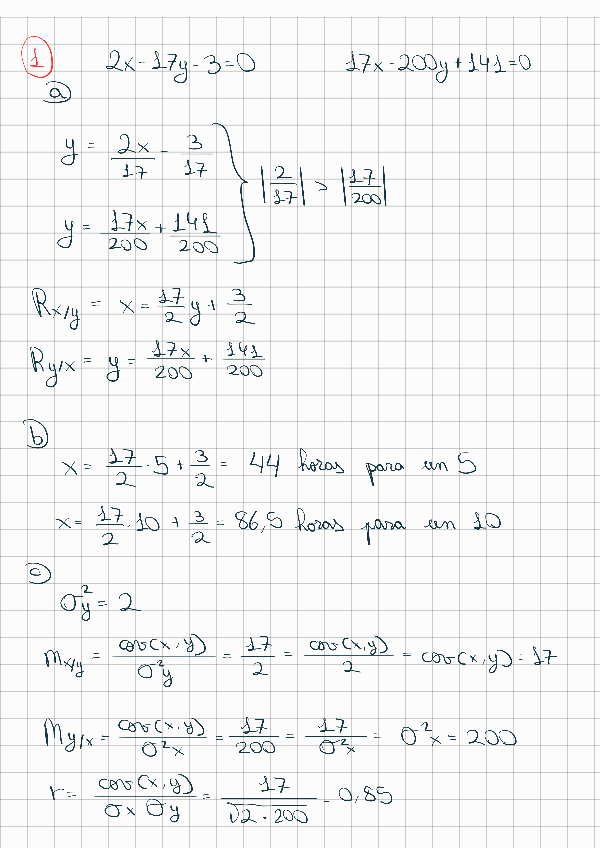 1 2x - 17y - 3 = 0 17x - 200y + 141 = 0
a
y = 2x/17 - 3/17
|2/17| > |17/200|
y = 17x/200 + 141/200
Rx/y = x = 17/2 y + 3/2
Ry/x = y = 17x/200 + 141/200
b
x = 17/2 · 5 + 3/2 = 44 horas para un 5
x = 17/2 · 10 + 3/2 = 86,5 horas para un 10
c
σ²y = 2
mx/y = cov(x,y)/σ²y = 17/2 = cov(x,y)/2 = cov(x,y) = 17
my/x = cov(x,y)/σ²x = 17/200 = 17/σ²x = σ²x = 200
r = cov(x,y)/σx σy = 17/√2·200 = 0,85